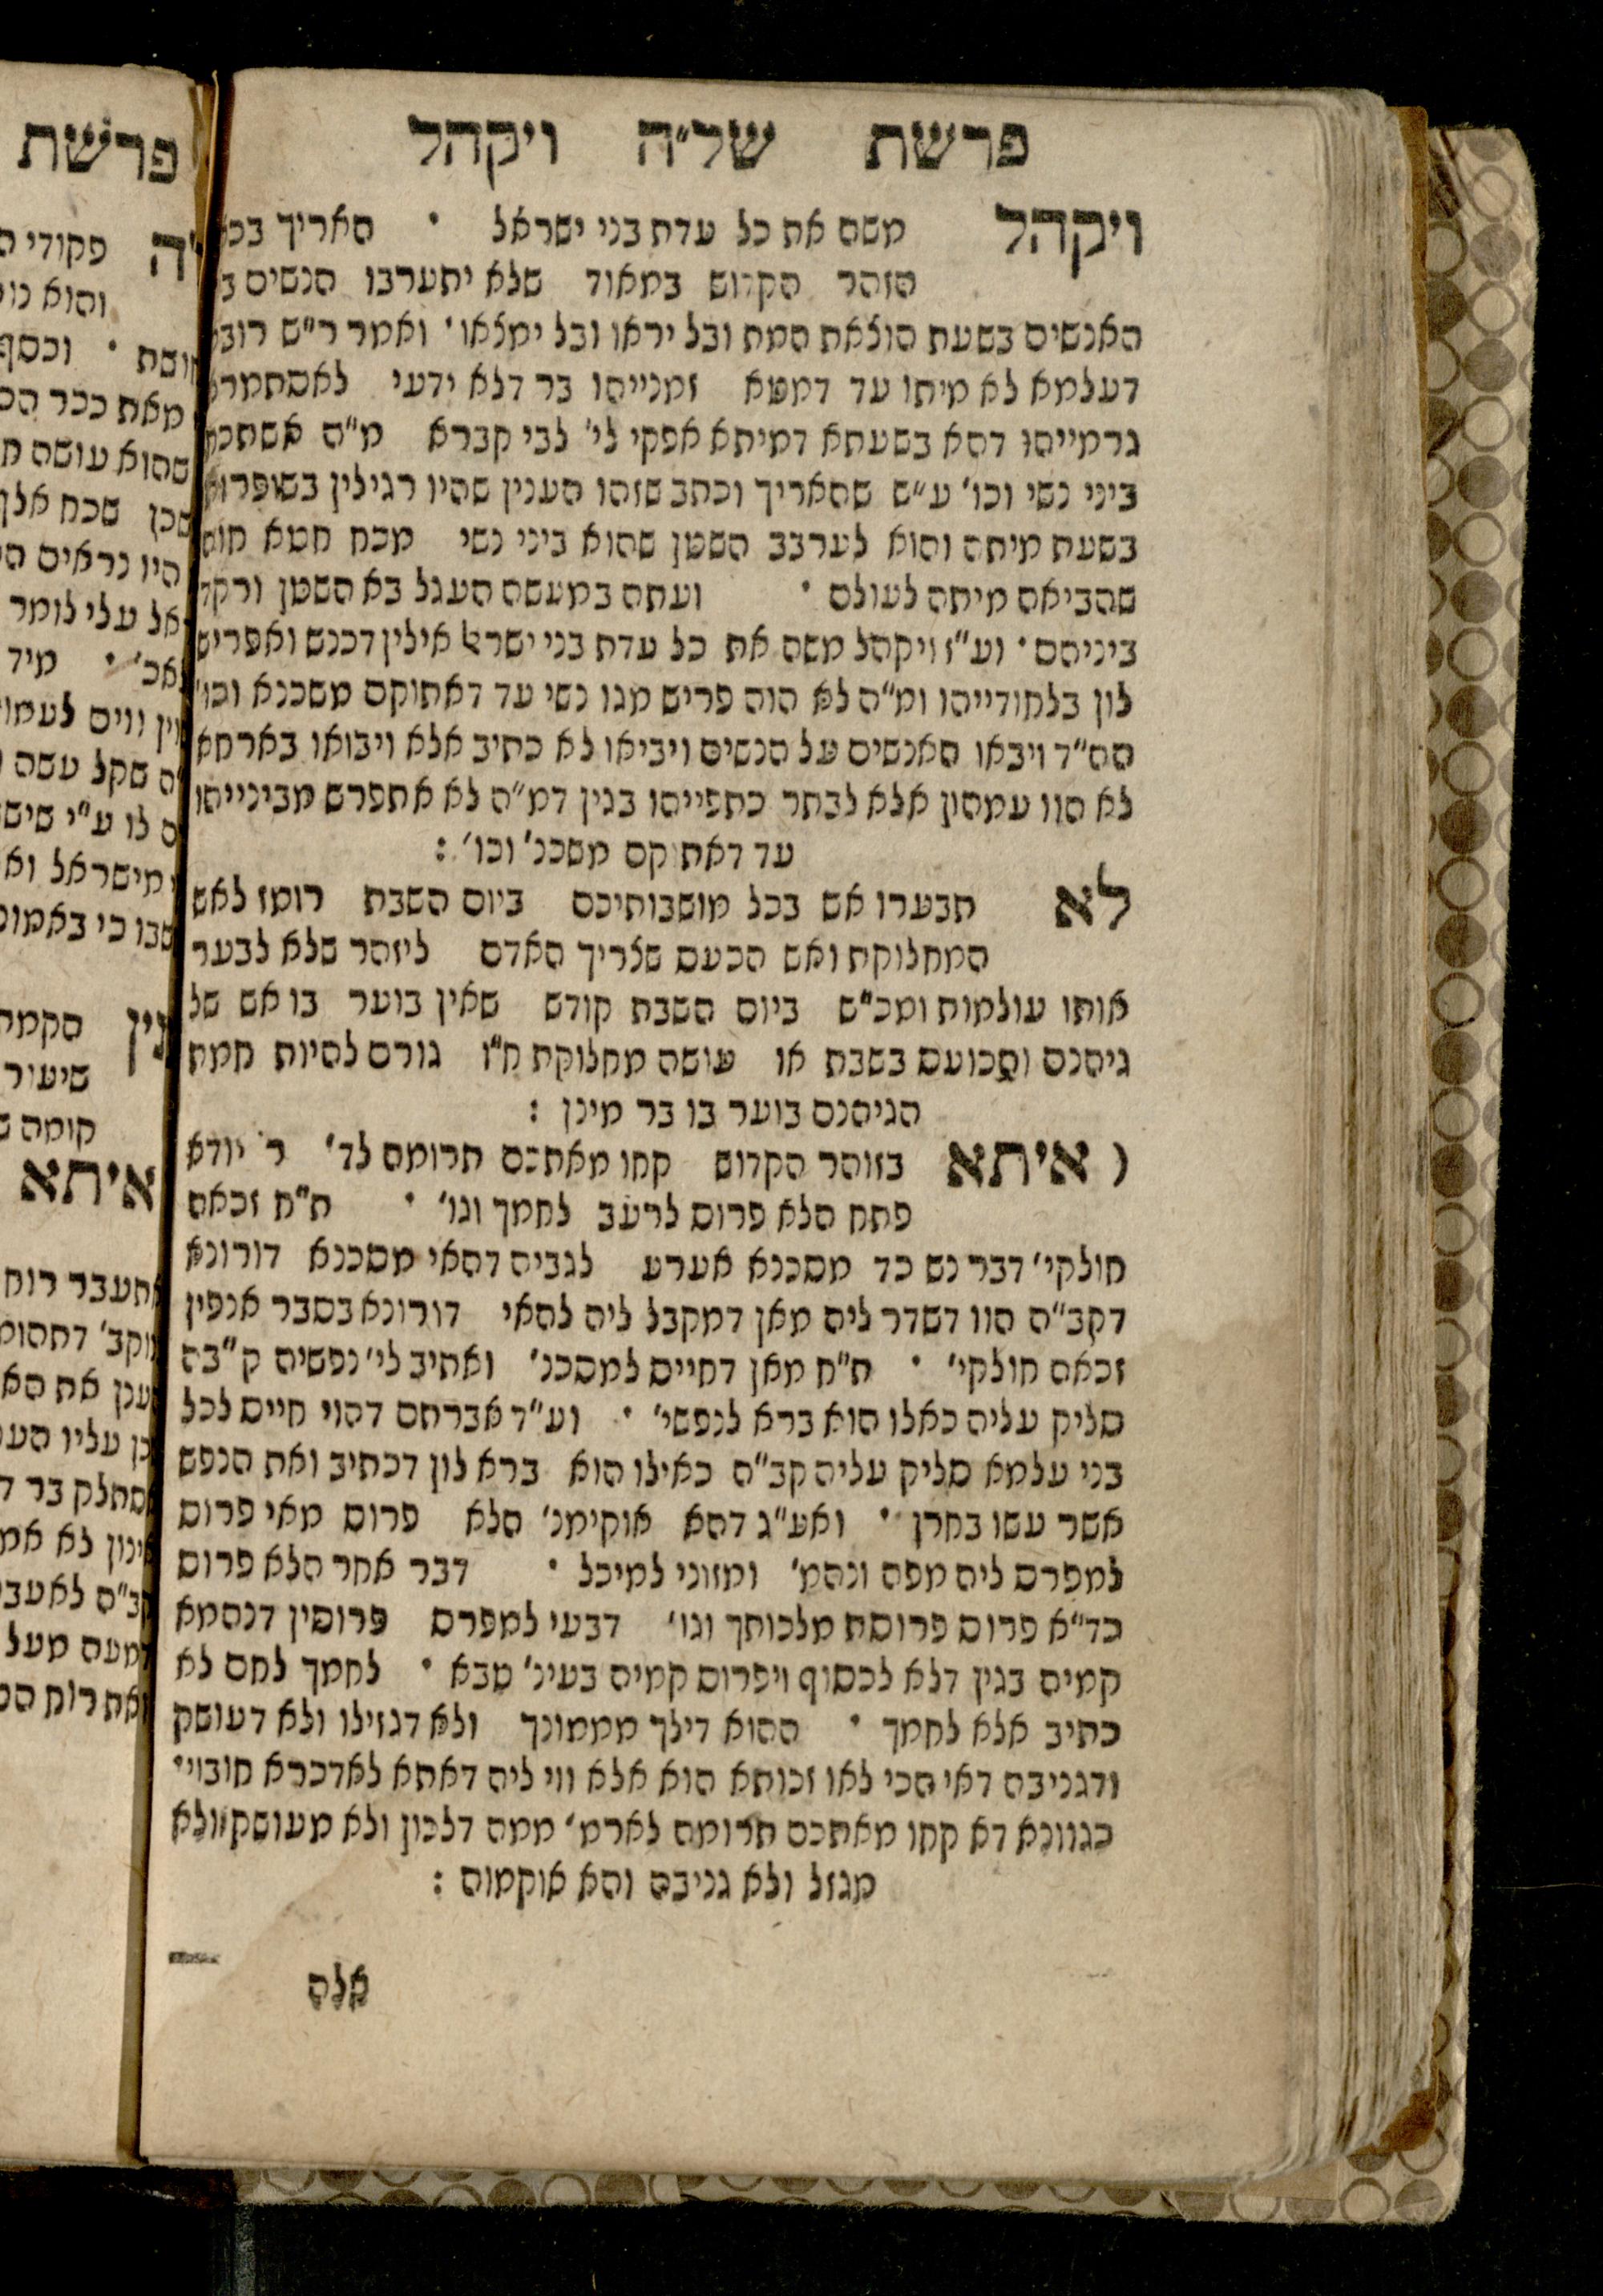 פרשת של״ה ויקהל
ויקהל משה את כל עדת בני ישראל • האריך
הזהר הקדוש במאוד שלא יתערבו הנשים
האנשים בשעת הוצאת המת ובל יראו ובל ימצאו • ואמר ר״ש
דעלמא לא מיתו עד דמטא זמנייהו בר דלא ידעי
גרמייהו דהא בשעתא דמיתא אפקי לי׳ לבי קברא מ״ה
ביני נשי וכו׳ ע״ש שהאריך וכתב שזהו הענין שהיו רגילין
בשעת מיתה והוא לערבב השטן שהוא ביני נשי מכח חטא
שהביאה מיתה לעולם • ועתה במעשה העגל בא השטן ורקד
ביניהם • וע״ז ויקהל משה את כל עדת בני ישראל אילין דכנש ואפריש
לון בלחודייהו ומ״ה לא הוה פריש מגו נשי עד דאתוקם משכנא וכו׳
הה״ד ויבאו האנשים על הנשים ויביאו לא כתיב אלא ויבואו בארחא
לא הוו עמהון אלא לבתר כתפייהו בגין דמ״ה לא אתפרש מבינייהו
עד דאתוקם משכנ׳ וכו׳ :
לא תבערו אש בכל מושבותיכם ביום השבת רומז לאש
המחלוקת ואש הכעס שצריך האדם ליזהר שלא לבער
אותו עולמות ומכ״ש ביום השבת קודש שאין בוער בו אש של
גיהנם והכועס בשבת או עושה מחלוקת ח״ו גורם להיות חמת
הגיהנם בוער בו בר מינן :
( איתא בזוהר הקדוש קחו מאתכם תרומה לד׳ ר׳ יודא
פתח הלא פרוס לרעב לחמך וגו׳ • ת״ח זכאה
חולקי׳ דבר נש כד מסכנא אערע לגביה דהאי מסכנא דורונא
דקב״ה הוו דשדר ליה מאן דמקבל ליה להאי דורונא בסבר אנפין
זכאה חולקי׳ • ת״ח מאן דחייס למסכנ׳ ואתיב לי׳ נפשיה ק״בה
סליק עליה כאלו הוא ברא לנפשי׳ • וע״ד אברהם דהוי חייס לכל
בני עלמא סליק עליה קב״ה כאילו הוא ברא לון דכתיב ואת הנפש
אשר עשו בחרן • ואע״ג דהא אוקימנ׳ הלא פרוס מאי פרוס
למפרס ליה מפה ונהמ׳ ומזוני למיכל • דבר אחר הלא פרוס
כד״א פרוס פרוסת מלכותך וגו׳ דבעי למפרס פרוסין דנהמא
קמיה בגין דלא לכסוף ויפרוס קמיה בעינ׳ טבא • לחמך לחם לא
כתיב אלא לחמך • ההוא דילך מממונך ולא דגזילו ולא דעושק
ודגניבה דאי הכי לאו זכותא הוא אלא ווי ליה דאתא לאדכרא חובוי׳
כגוונא דא קחו מאתכם תרומה לארמ׳ ממה דלכון ולא מעושק ולא
מגזל ולא גניבה והא אוקמוה :
אלה
פרשת
פקודי
והוא
וכסף
מאת ככר
שהוא עושה
שכח אלף
היו נראים
עלי לומר
מיד
ווים לעמוד
שקל עשה
לו ע״י
מישראל
כי
הקמה
שיעור
קומה
איתא
רוח
את
עליו
בר
לא
מעל
רוח